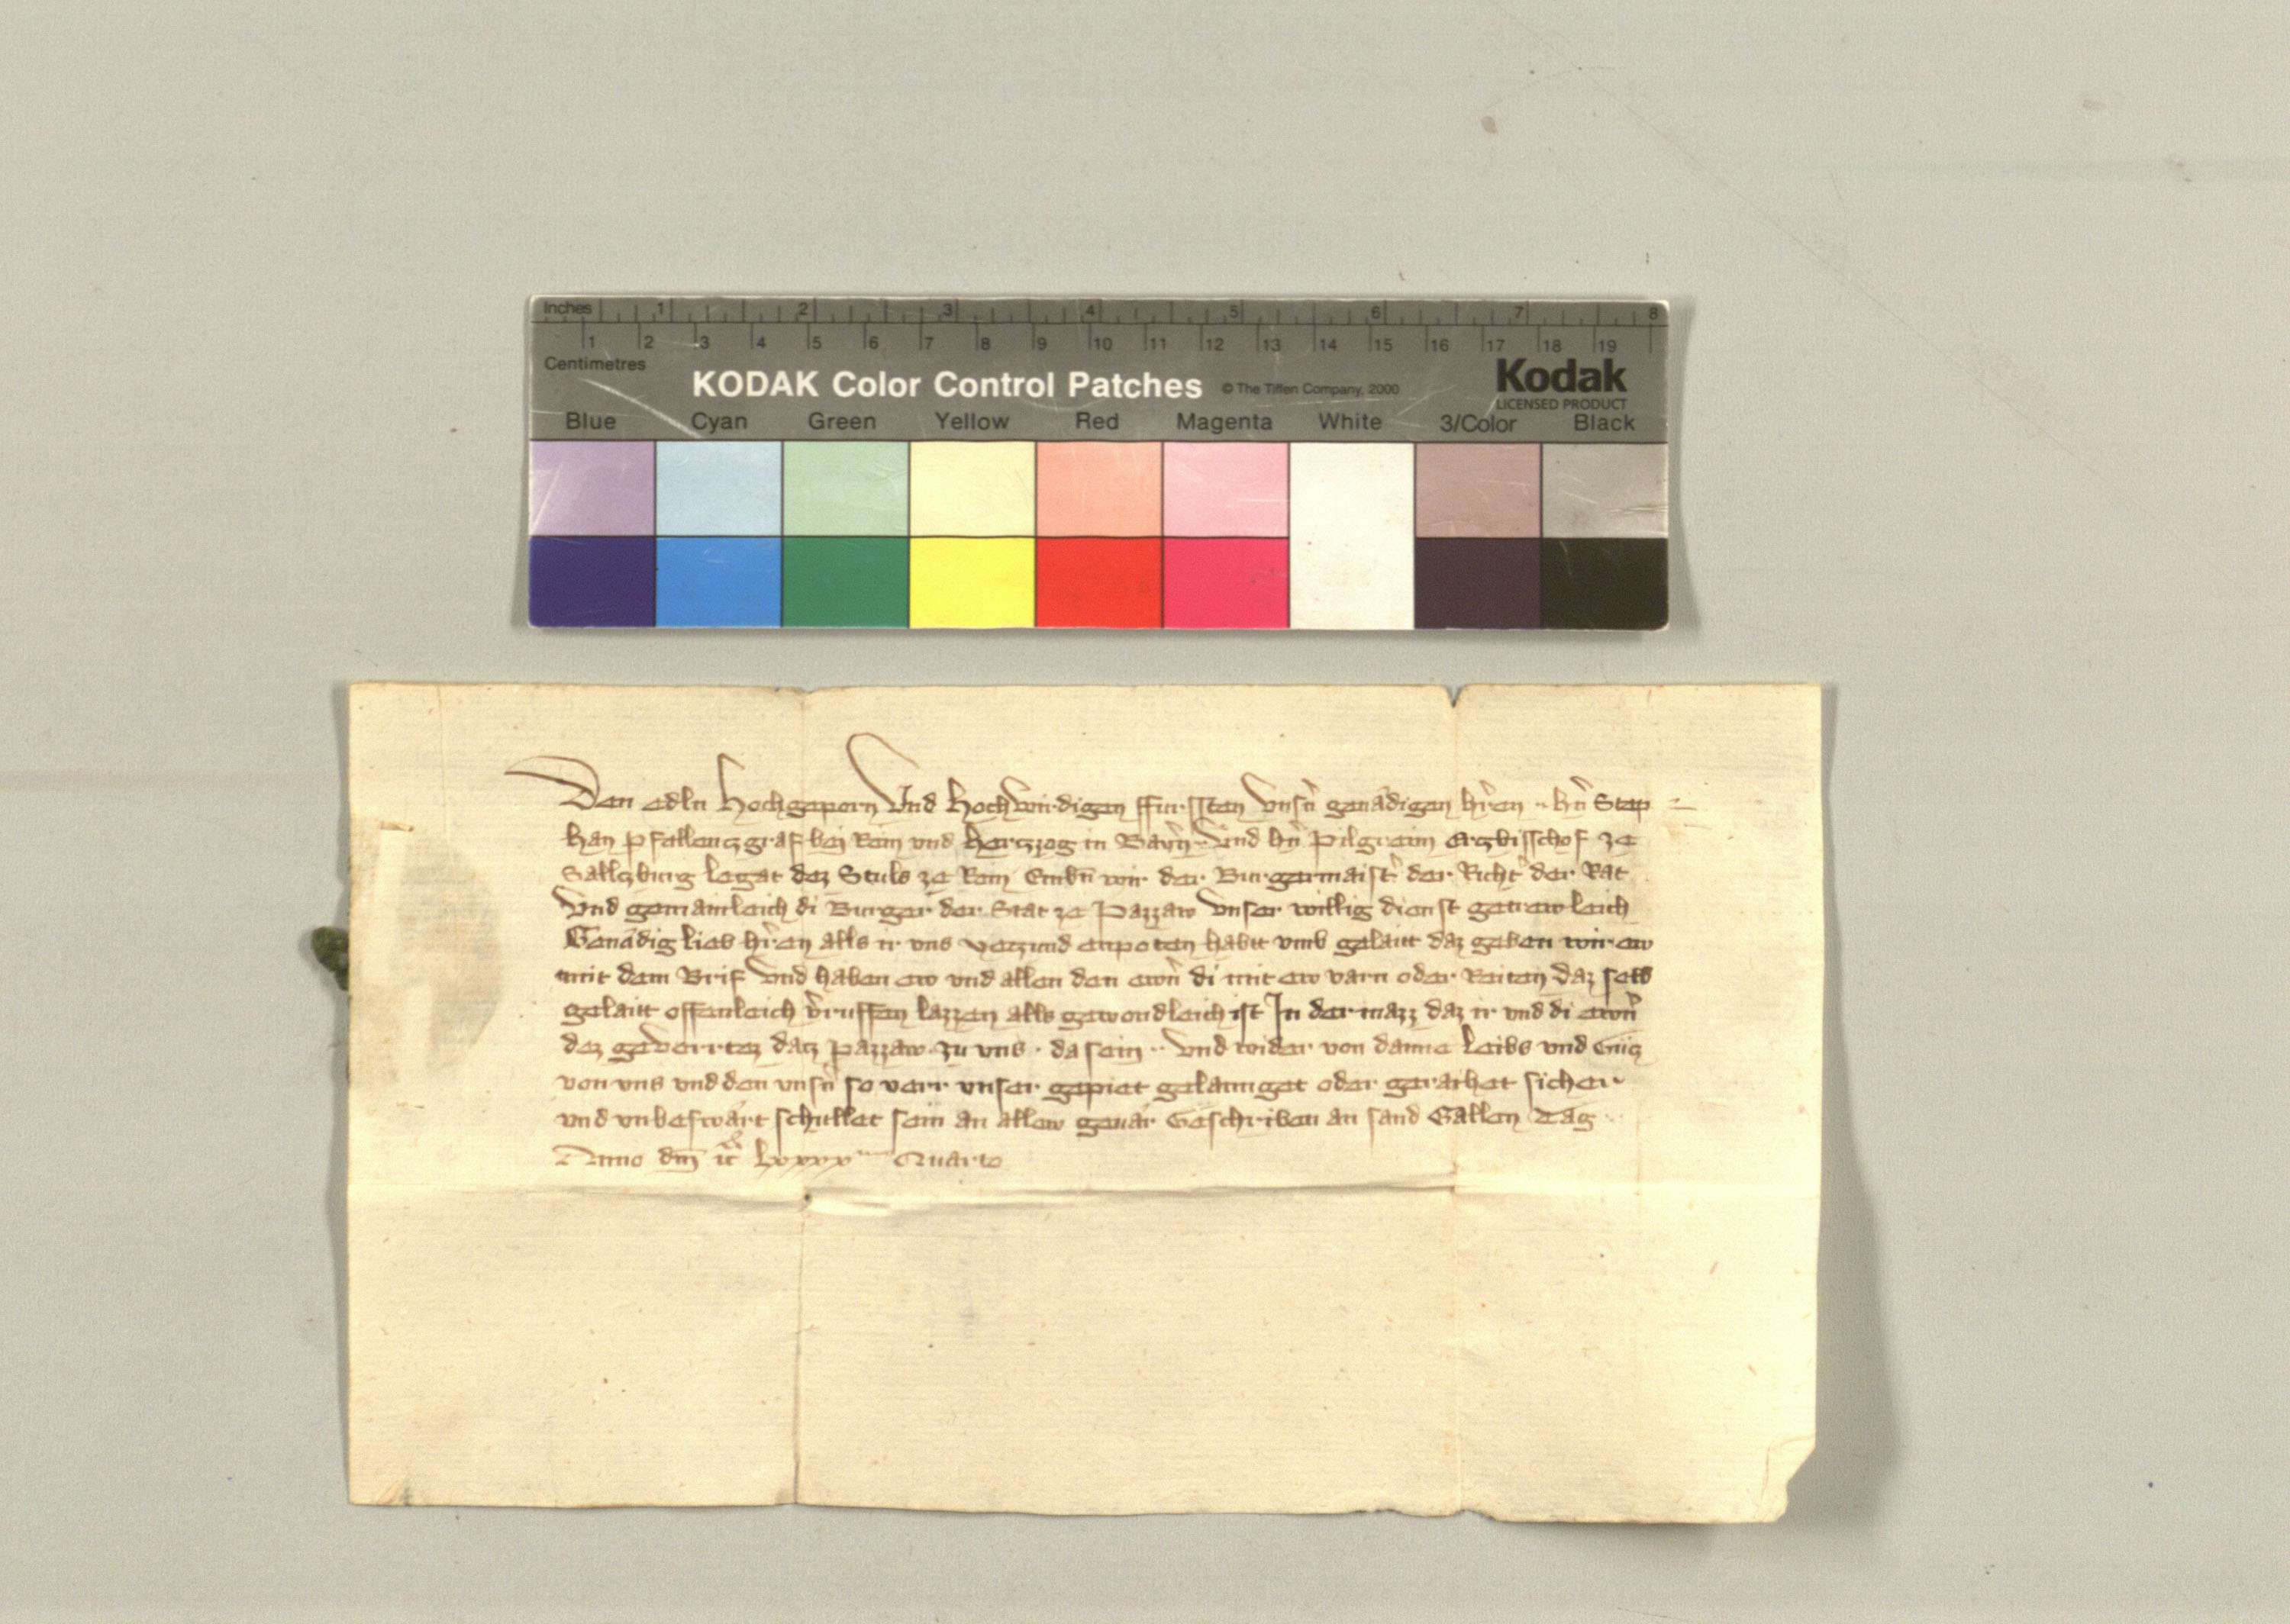 Inches 1 2 3 4 5 6 7 8
1 2 3 4 5 6 7 8 9 10 11 12 13 14 15 16 17 18 19
Centimetres
KODAK Color Control Patches © The Tiffen Company, 2000 Kodak
LICENSED PRODUCT
Blue Cyan Green Yellow Red Magenta White 3/Color Black
Den edln Hochgeporn Vnd Hochwirdigen ffurssten Vnsn̄ genádigen hr̄en hn̄ Step
han pfallenczgraf bey Rein vnd herczzog in Bayrn̄ Vnd hn̄ Pilgreim Erczbisschof ze
Sallczburg legat dez Stuls ze Rom Embn̄ wir der Burgermaist̄ der Richt̄ der Rat
Vnd gemainleich di Burger der Stat ze Pazzaw Vnser willig dienst getrewleich
Genádig lieb hr̄en alls ir vns yeczund enpoten habtt vmb gelaitt daz geben wir ew
mit dem Brif Vnd haben ew vnd allen den ewn̄ di mit ew varn oder Reiten daz selb
gelaitt offenleich v̄ruffen lazzen alls gewondleich ist In der mazz daz ir vnd di ewrn̄
dez geverrtez dacz pazzaw zu vns da sein Vnd wider von danne leibs vnd Gucz
von vns vnd den vnsn̄ so verr vnser gepiet gelannget oder geraihet sicher
vnd vnbeswárt schullet sein an allew geuár Geschriben an sand Gallen Tag
Anno dm̄ lxxx Quarto